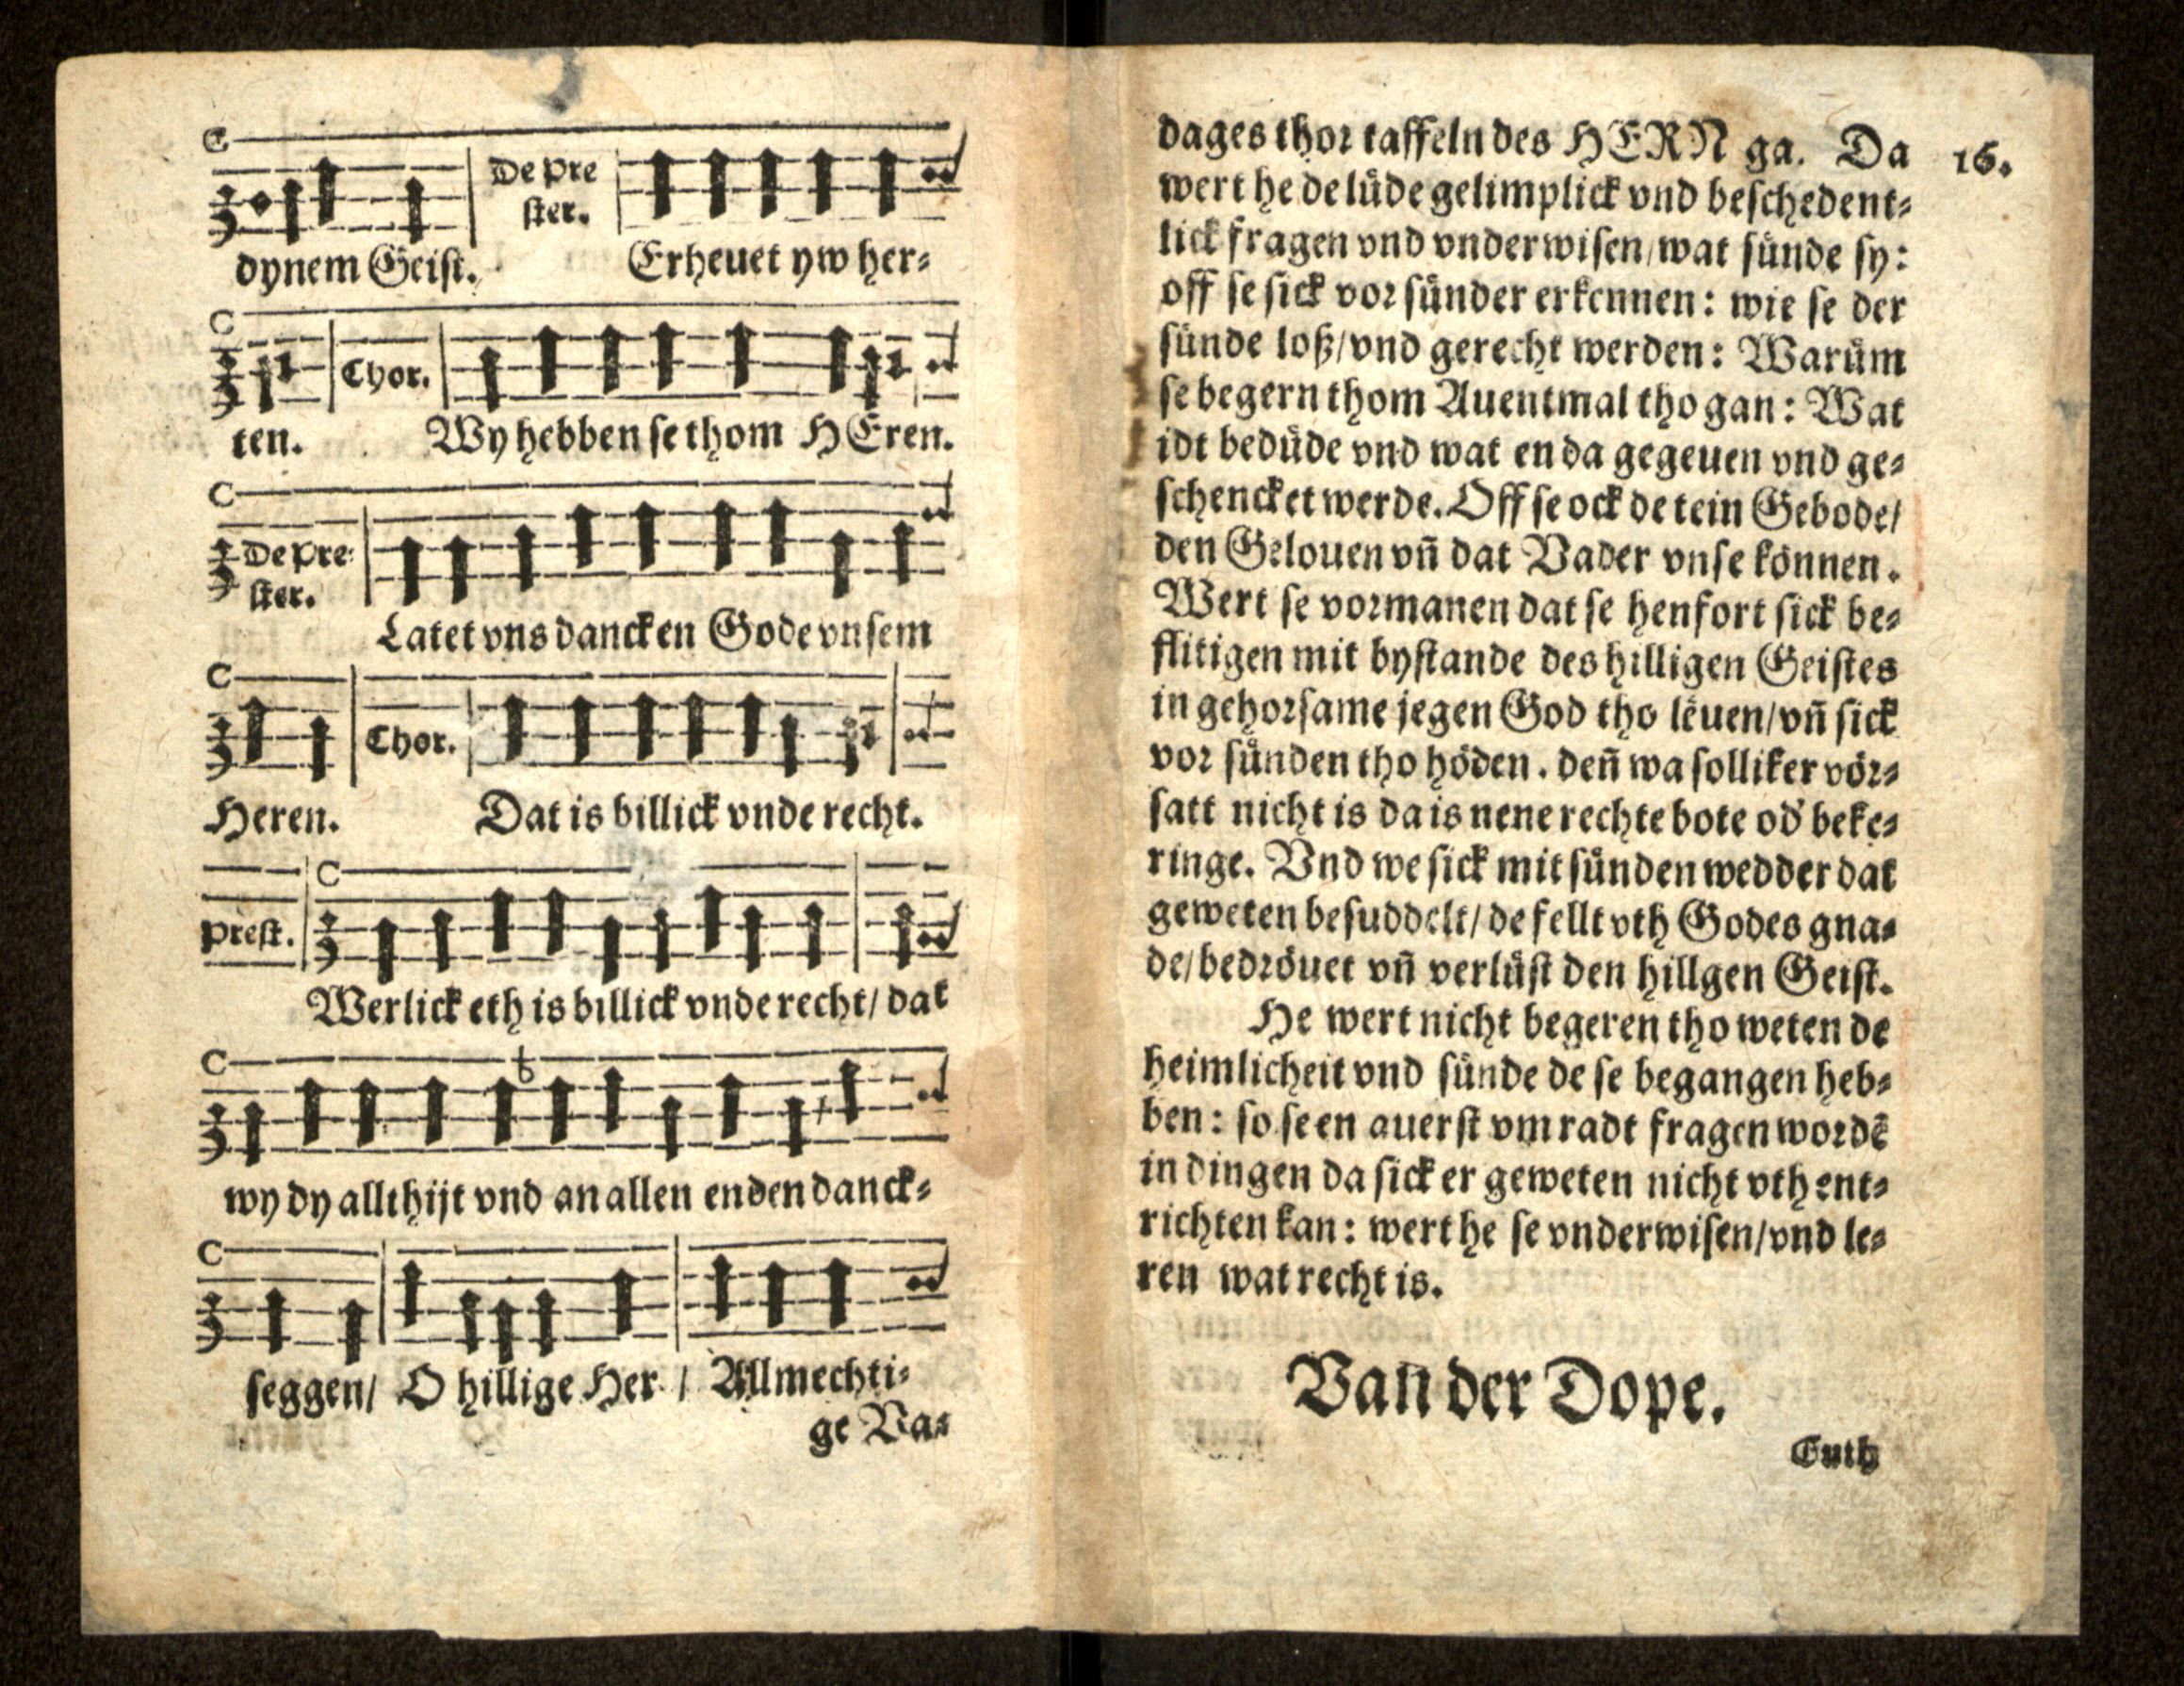 De Pre
ster.
dynem Geist. Erheuet yw her⸗
Chor.
ten. Wy hebben se thom HEren.
De Pre⸗
ster.
Latet vns dancken Gode vnsem
Chor.
Heren. Dat is billick vnde recht.
Prest.
Werlick eth is billick vnde recht/ dat
wy dy allthijt vnd an allen enden danck⸗
seggen/ O hillige Her / Allmechti⸗
ge Va⸗
16.
dages thor taffeln des HERN ga. Da
wert he de lüde gelimplick vnd beschedent⸗
lick fragen vnd vnderwisen/ wat sünde sy:
off se sick vor sünder erkennen: wie se der
sünde loß/ vnd gerecht werden: Warüm
se begern thom Auentmal tho gan: Wat
idt bedüde vnd wat en da gegeuen vnd ge⸗
schencket werde. Off se ock de tein Gebode/
den Gelouen vñ dat Vader vnse können.
Wert se vormanen dat se henfort sick be⸗
flitigen mit bystande des hilligen Geistes
in gehorsame jegen God tho leuen/ vñ sick
vor sünden tho höden. deñ wa solliker vör⸗
satt nicht is da is nene rechte bote od' beke⸗
ringe. Vnd we sick mit sünden wedder dat
geweten besuddelt/ de fellt vth Godes gna⸗
de/ bedröuet vñ verlüst den hillgen Geist.
He wert nicht begeren tho weten de
heimlicheit vnd sünde de se begangen heb⸗
ben: so se en auerst vm radt fragen wordē
in dingen da sick er geweten nicht vth ent⸗
richten kan: wert he se vnderwisen/ vnd le⸗
ren wat recht is.
Van der Dope.
Euth